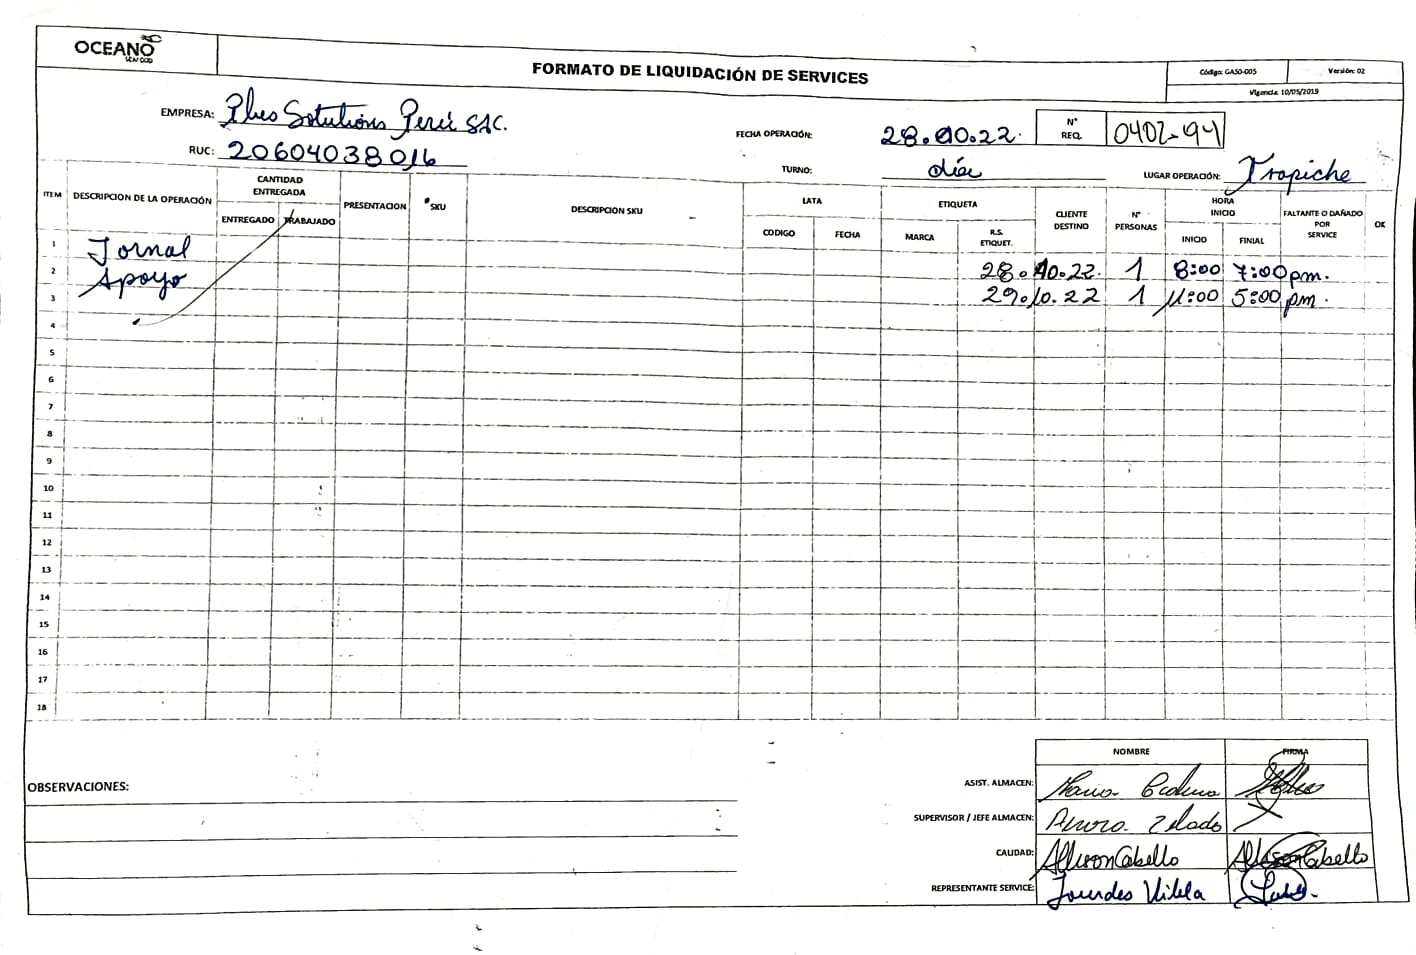 OCEANO
SEAFOOD
FORMATO DE LIQUIDACIÓN DE SERVICES
Código: GASO-005 Versión: 02
Vigencia: 10/05/2019
EMPRESA: Plus Solutions Perú SAC.
FECHA OPERACIÓN: 28.10.22.
N° REQ. 0402-94
RUC: 20604038016
TURNO: día
LUGAR OPERACIÓN: Trapiche
ITEM DESCRIPCION DE LA OPERACIÓN CANTIDAD ENTREGADA PRESENTACION # SKU DESCRIPCION SKU LATA ETIQUETA CLIENTE DESTINO N° PERSONAS HORA INICIO FALTANTE O DAÑADO POR SERVICE OK
ENTREGADO TRABAJADO CODIGO FECHA MARCA R.S. ETIQUET. INICIO FINIAL
1 Jornal
2 Apoyo 28.10.22. 1 8:00 7:00 pm.
3 29.10.22 1 11:00 5:00 pm.
4
5
6
7
8
9
10
11
12
13
14
15
16
17
18
NOMBRE FIRMA
OBSERVACIONES:
ASIST. ALMACEN:
SUPERVISOR / JEFE ALMACEN:
CALIDAD: Allison Cabello Allison Cabello
REPRESENTANTE SERVICE: Lourdes Vilela